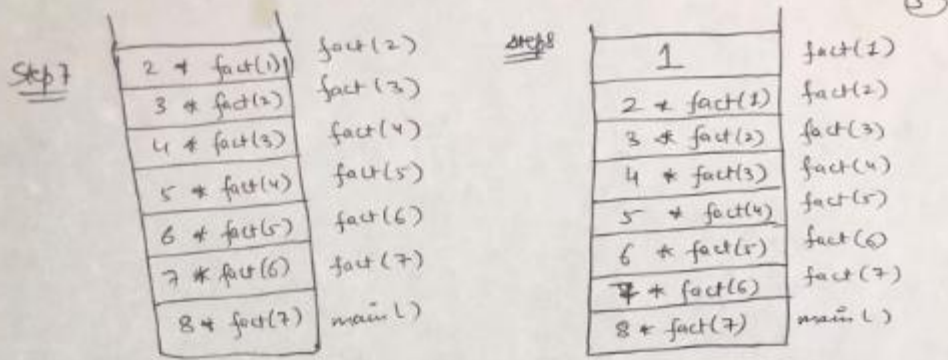 3
Step 7
2 * fact(1) fact(2)
3 * fact(2) fact(3)
4 * fact(3) fact(4)
5 * fact(4) fact(5)
6 * fact(5) fact(6)
7 * fact(6) fact(7)
8 * fact(7) main()
step8
1 fact(1)
2 * fact(1) fact(2)
3 * fact(2) fact(3)
4 * fact(3) fact(4)
5 * fact(4) fact(5)
6 * fact(5) fact(6)
7 * fact(6) fact(7)
8 * fact(7) main()